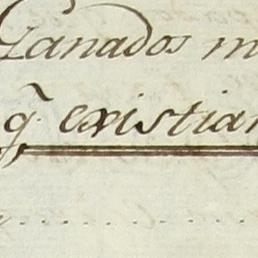 Ganados m
q̃ existian